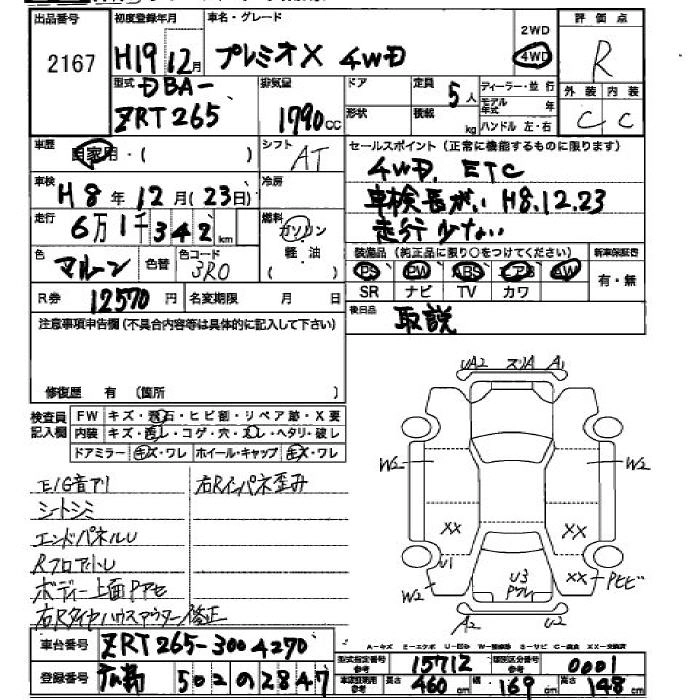 出品番号 初度登録年月 車名・グレード 評価点
2167 H19 12月 プレミオX 4WD 2WD 4WD R
型式 DBA- 排気量 ドア 定員 5人 ディーラー・並行 外装 内装
ZRT265 1790cc 形状 積載 kg モデル年式 年 C C
ハンドル 左・右
車歴 自家用・( ) シフト AT セールスポイント(正常に機能するものに限ります)
車検 H8年12月(23日) 冷房 4WD. ETC
車検長がい H8.12.23
走行 6万1千342km 燃料 ガソリン 軽・油 ( ) 走行少ない
色 マルーン 色替 色コード 3R0 装備品(純正品に限り○をつけてください) 新車保証書
PS PW ABS エアB AW 有・無
R券 12570円 名変期限 月 日 SR ナビ TV カワ
注意事項申告欄(不具合内容等は具体的に記入して下さい) 後日品 取説
修復歴 有 (箇所 )
UA2 スリA A1
検査員記入欄 FW キズ・飛石・ヒビ割・リペア跡・X要
内装 キズ・汚レ・コゲ・穴・スレ・ヘタリ・破レ
ドアミラー キズ・ワレ ホイール・キャップ キズ・ワレ
W2 W2
E/G音アリ 右Rインパネ歪み
シートシミ
エンドパネルU XX XX
RフロアトU U1
ボディー上面Pアセ U3 Pワレ XX Pヒビ
右Rタイヤハウスアウター修正 A2 U2
A-キズ E-エクボ U-凹み W-補修跡 S-サビ C-腐食 XX-交換済
車台番号 ZRT265-3004270
型式指定番号 参考 15712 類別区分番号 参考 0001
登録番号 502 の 2847
車検証期用 参考 長さ 460cm 幅 169cm 高さ 148cm